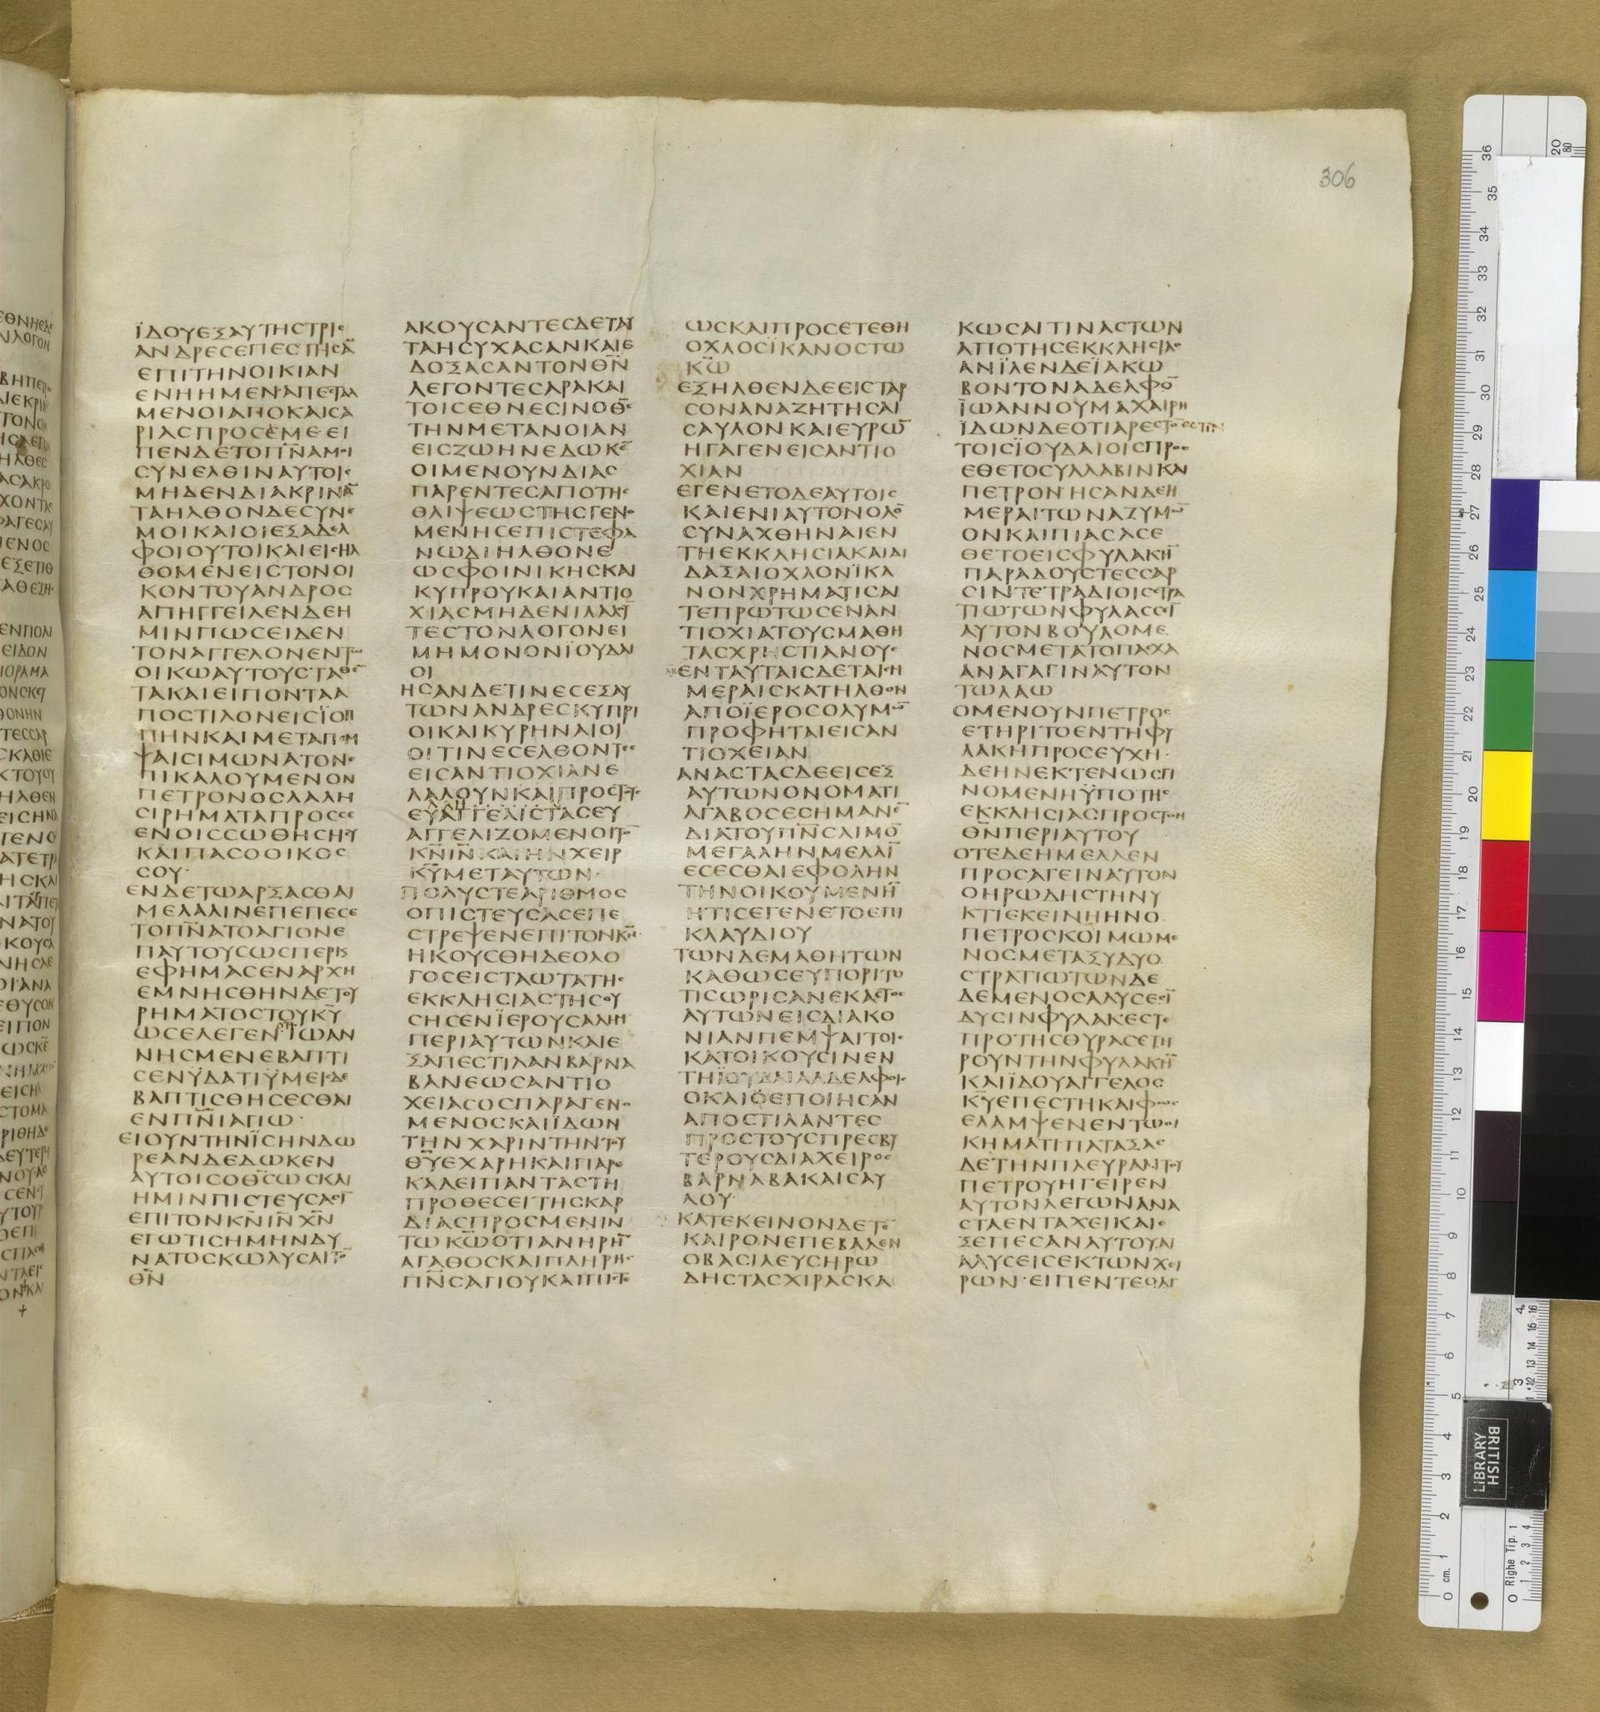 306
ΪΔΟΥΕΞΑΥΤΗϹΤΡΙϹ
ΑΝΔΡΕϹΕΠΕϹΤΗϹΑ̅
ΕΠΙΤΗΝΟΙΚΙΑΝ
ΕΝΗΗΜΕΝΑΠΕϹΤΑΛ
ΜΕΝΟΙΑΠΟΚΑΙϹΑ
ΡΙΑϹΠΡΟϹΕΜΕΕΙ
ΠΕΝΔΕΤΟΠ̅Ν̅ΑΜΟΙ
ϹΥΝΕΛΘΙΝΑΥΤΟΙϹ
ΜΗΔΕΝΔΙΑΚΡΙΝΑ̅
ΤΑΗΛΘΟΝΔΕϹΥΝ
ΜΟΙΚΑΙΟΙΕΞΑΔΕΛ
ΦΟΙΟΥΤΟΙΚΑΙΕΙϹΗΛ
ΘΟΜΕΝΕΙϹΤΟΝΟΙ
ΚΟΝΤΟΥΑΝΔΡΟϹ
ΑΠΗΓΓΕΙΛΕΝΔΕΗ
ΜΙΝΠΩϹΕΙΔΕΝ
ΤΟΝΑΓΓΕΛΟΝΕΝΤΩ
ΟΙΚΩΑΥΤΟΥϹΤΑΘΕ̅
ΤΑΚΑΙΕΙΠΟΝΤΑΑ
ΠΟϹΤΙΛΟΝΕΙϹΪΟΠ
ΠΗΝΚΑΙΜΕΤΑΠΕΜ
ΨΑΙϹΙΜΩΝΑΤΟΝΕ
ΠΙΚΑΛΟΥΜΕΝΟΝ
ΠΕΤΡΟΝΟϹΛΑΛΗ
ϹΙΡΗΜΑΤΑΠΡΟϹϹΕ
ΕΝΟΙϹϹΩΘΗϹΗϹΥ
ΚΑΙΠΑϹΟΟΙΚΟϹ
ϹΟΥ
ΕΝΔΕΤΩΑΡΞΑϹΘΑΙ
ΜΕΛΑΛΙΝΕΠΕΠΕϹΕ
ΤΟΠ̅Ν̅ΑΤΟΑΓΙΟΝΕ
ΠΑΥΤΟΥϹΩϹΠΕΡΚ
ΕΦΗΜΑϹΕΝΑΡΧΗ
ΕΜΝΗϹΘΗΝΔΕΤΟΥ
ΡΗΜΑΤΟϹΤΟΥΚ̅Υ̅
ΩϹΕΛΕΓΕΝΟΤΙΪΩΑΝ
ΝΗϹΜΕΝΕΒΑΠΤΙ
ϹΕΝΫΔΑΤΙΫΜΕΙϹΔΕ
ΒΑΠΤΙϹΘΗϹΕϹΘΑΙ
ΕΝΠ̅Ν̅ΙΑΓΙΩ
ΕΙΟΥΝΤΗΝΪϹΗΝΔΩ
ΡΕΑΝΔΕΔΩΚΕΝ
ΑΥΤΟΙϹΟΘ̅Ϲ̅ΩϹΚΑΙ
ΗΜΙΝΠΙϹΤΕΥϹΑϹΙ̅
ΕΠΙΤΟΝΚ̅Ν̅Ι̅Ν̅Χ̅Ν̅
ΕΓΩΤΙϹΗΜΗΝΔΥ
ΝΑΤΟϹΚΩΛΥϹΑΙΤΟ̅
Θ̅Ν̅
ΑΚΟΥϹΑΝΤΕϹΔΕΤΑΥ
ΤΑΗϹΥΧΑϹΑΝΚΑΙΕ
ΔΟΞΑϹΑΝΤΟΝΘ̅Ν̅
ΛΕΓΟΝΤΕϹΑΡΑΚΑΙ
ΤΟΙϹΕΘΝΕϹΙΝΟΘ̅Ϲ̅
ΤΗΝΜΕΤΑΝΟΙΑΝ
ΕΙϹΖΩΗΝΕΔΩΚΕ̅
ΟΙΜΕΝΟΥΝΔΙΑϹ
ΠΑΡΕΝΤΕϹΑΠΟΤΗϹ
ΘΛΙΨΕΩϹΤΗϹΓΕΝΟ
ΜΕΝΗϹΕΠΙϹΤΕΦΑ
ΝΩΔΙΗΛΘΟΝΕ
ΩϹΦΟΙΝΙΚΗϹΚΑΙ
ΚΥΠΡΟΥΚΑΙΑΝΤΙΟ
ΧΙΑϹΜΗΔΕΝΙΛΑΛΟΥ̅
ΤΕϹΤΟΝΛΟΓΟΝΕΙ
ΜΗΜΟΝΟΝΪΟΥΔΑΙ
ΟΙ
ΗϹΑΝΔΕΤΙΝΕϹΕΞΑΥ
ΤΩΝΑΝΔΡΕϹΚΥΠΡΙ
ΟΙΚΑΙΚΥΡΗΝΑΙΟΙ
ΟΙΤΙΝΕϹΕΛΘΟΝΤΕϹ
ΕΙϹΑΝΤΙΟΧΙΑΝΕ
ΛΑΛΟΥΝΚΑΙΠΡΟϹΤΟΥϹ
ΕΥΑΓΓΕΛΙϹΤΑϹΕΥ
ΑΓΓΕΛΙΖΟΜΕΝΟΙΤΟ̅
Κ̅Ν̅Ι̅Ν̅ΚΑΙΗΝΧΕΙΡ
Κ̅Υ̅ΜΕΤΑΥΤΩΝ
ΠΟΛΥϹΤΕΑΡΙΘΜΟϹ
ΟΠΙϹΤΕΥϹΑϹΕΠΕ
ϹΤΡΕΨΕΝΕΠΙΤΟΝΚ̅Ν̅
ΗΚΟΥϹΘΗΔΕΟΛΟ
ΓΟϹΕΙϹΤΑΩΤΑΤΗϹ
ΕΚΚΛΗϹΙΑϹΤΗϹΟΥ
ϹΗϹΕΝΪΕΡΟΥϹΑΛΗΜ
ΠΕΡΙΑΥΤΩΝΚΑΙΕ
ΞΑΠΕϹΤΙΛΑΝΒΑΡΝΑ
ΒΑΝΕΩϹΑΝΤΙΟ
ΧΕΙΑϹΟϹΠΑΡΑΓΕΝΟ
ΜΕΝΟϹΚΑΙΪΔΩΝ
ΤΗΝΧΑΡΙΝΤΗΝΤΟΥ
Θ̅Υ̅ΕΧΑΡΗΚΑΙΠΑΡΕ
ΚΑΛΕΙΠΑΝΤΑϹΤΗ
ΠΡΟΘΕϹΕΙΤΗϹΚΑΡ
ΔΙΑϹΠΡΟϹΜΕΝΙΝ
ΤΩΚ̅Ω̅ΟΤΙΑΝΗΡΗ̅
ΑΓΑΘΟϹΚΑΙΠΛΗΡΗϹ
Π̅Ν̅Ϲ̅ΑΓΙΟΥΚΑΙΠΙϹΤΕ
ΩϹΚΑΙΠΡΟϹΕΤΕΘΗ
ΟΧΛΟϹΙΚΑΝΟϹΤΩ
Κ̅Ω̅
ΕΞΗΛΘΕΝΔΕΕΙϹΤΑΡ
ϹΟΝΑΝΑΖΗΤΗϹΑΙ
ϹΑΥΛΟΝΚΑΙΕΥΡΩ̅
ΗΓΑΓΕΝΕΙϹΑΝΤΙΟ
ΧΙΑΝ
ΕΓΕΝΕΤΟΔΕΑΥΤΟΙϹ
ΚΑΙΕΝΙΑΥΤΟΝΟΛΟ̅
ϹΥΝΑΧΘΗΝΑΙΕΝ
ΤΗΕΚΚΛΗϹΙΑΚΑΙΔΙ
ΔΑΞΑΙΟΧΛΟΝΪΚΑ
ΝΟΝΧΡΗΜΑΤΙϹΑΙ
ΤΕΠΡΩΤΩϹΕΝΑΝ
ΤΙΟΧΙΑΤΟΥϹΜΑΘΗ
ΤΑϹΧΡΗϹΤΙΑΝΟΥϹ
ΕΝΤΑΥΤΑΙϹΔΕΤΑΙϹΗ
ΜΕΡΑΙϹΚΑΤΗΛΘΟΝ
ΑΠΟΪΕΡΟϹΟΛΥΜΩ̅
ΠΡΟΦΗΤΑΙΕΙϹΑΝ
ΤΙΟΧΕΙΑΝ
ΑΝΑϹΤΑϹΔΕΕΙϹΕΞ
ΑΥΤΩΝΟΝΟΜΑΤΙ
ΑΓΑΒΟϹΕϹΗΜΑΝΕ̅
ΔΙΑΤΟΥΠ̅Ν̅Ϲ̅ΛΙΜΟ̅
ΜΕΓΑΛΗΝΜΕΛΛΙ̅
ΕϹΕϹΘΑΙΕΦΟΛΗΝ
ΤΗΝΟΙΚΟΥΜΕΝΗ̅
ΗΤΙϹΕΓΕΝΕΤΟΕΠΙ
ΚΛΑΥΔΙΟΥ
ΤΩΝΔΕΜΑΘΗΤΩΝ
ΚΑΘΩϹΕΥΠΟΡΙΤΟ
ΤΙϹΩΡΙϹΑΝΕΚΑϹΤΟϹ
ΑΥΤΩΝΕΙϹΔΙΑΚΟ
ΝΙΑΝΠΕΜΨΑΙΤΟΙϹ
ΚΑΤΟΙΚΟΥϹΙΝΕΝ
ΤΗΪΟΥΔΑΙΑΑΔΕΛΦΟΙϹ
ΟΚΑΙΕΠΟΙΗϹΑΝ
ΑΠΟϹΤΙΛΑΝΤΕϹ
ΠΡΟϹΤΟΥϹΠΡΕϹΒΥ
ΤΕΡΟΥϹΔΙΑΧΕΙΡΟϹ
ΒΑΡΝΑΒΑΚΑΙϹΑΥ
ΛΟΥ
ΚΑΤΕΚΕΙΝΟΝΔΕΤΟ̅
ΚΑΙΡΟΝΕΠΕΒΑΛΕΝ
ΟΒΑϹΙΛΕΥϹΗΡΩ
ΔΗϹΤΑϹΧΙΡΑϹΚΑ
ΚΩϹΑΙΤΙΝΑϹΤΩΝ
ΑΠΟΤΗϹΕΚΚΛΗϹΙΑϹ
ΑΝΪΛΕΝΔΕΪΑΚΩ
ΒΟΝΤΟΝΑΔΕΛΦΟ̅
ΪΩΑΝΝΟΥΜΑΧΑΙΡΗ
ΪΔΩΝΔΕΟΤΙΑΡΕϹΤΟ̅ΕϹΤΙΝ
ΤΟΙϹΪΟΥΔΑΙΟΙϹΠΡΟϹ
ΕΘΕΤΟϹΥΛΛΑΒΙΝΚΑΙ
ΠΕΤΡΟΝΗϹΑΝΔΕΗ
ΜΕΡΑΙΤΩΝΑΖΥΜΩ̅
ΟΝΚΑΙΠΙΑϹΑϹΕ
ΘΕΤΟΕΙϹΦΥΛΑΚΗ̅
ΠΑΡΑΔΟΥϹΤΕϹϹΑΡ
ϹΙΝΤΕΤΡΑΔΙΟΙϹϹΤΡΑ
ΤΙΩΤΩΝΦΥΛΑϹϹΙ̅
ΑΥΤΟΝΒΟΥΛΟΜΕ
ΝΟϹΜΕΤΑΤΟΠΑϹΧΑ
ΑΝΑΓΑΓΙΝΑΥΤΟΝ
ΤΩΛΑΩ
ΟΜΕΝΟΥΝΠΕΤΡΟϹ
ΕΤΗΡΙΤΟΕΝΤΗΦΥ
ΛΑΚΗΠΡΟϹΕΥΧΗ
ΔΕΗΝΕΚΤΕΝΩϹΓΙ
ΝΟΜΕΝΗΫΠΟΤΗϹ
ΕΚΚΛΗϹΙΑϹΠΡΟϹΤΟΝ
Θ̅Ν̅ΠΕΡΙΑΥΤΟΥ
ΟΤΕΔΕΗΜΕΛΛΕΝ
ΠΡΟϹΑΓΕΙΝΑΥΤΟΝ
ΟΗΡΩΔΗϹΤΗΝΥ
ΚΤΙΕΚΕΙΝΗΗΝΟ
ΠΕΤΡΟϹΚΟΙΜΩΜΕ
ΝΟϹΜΕΤΑΞΥΔΥΟ
ϹΤΡΑΤΙΩΤΩΝΔΕ
ΔΕΜΕΝΟϹΑΛΥϹΕϹΙ̅
ΔΥϹΙΝΦΥΛΑΚΕϹΤΕ
ΠΡΟΤΗϹΘΥΡΑϹΕΤΗ
ΡΟΥΝΤΗΝΦΥΛΑΚΗ̅
ΚΑΙΪΔΟΥΑΓΓΕΛΟϹ
Κ̅Υ̅ΕΠΕϹΤΗΚΑΙΦΩϹ
ΕΛΑΜΨΕΝΕΝΤΩΟΙ
ΚΗΜΑΤΙΠΑΤΑΞΑϹ
ΔΕΤΗΝΠΛΕΥΡΑΝΤΟΥ
ΠΕΤΡΟΥΗΓΕΙΡΕΝ
ΑΥΤΟΝΛΕΓΩΝΑΝΑ
ϹΤΑΕΝΤΑΧΕΙΚΑΙΕ
ΞΕΠΕϹΑΝΑΥΤΟΥΑΙ
ΑΛΥϹΕΙϹΕΚΤΩΝΧΕΙ
ΡΩΝΕΙΠΕΝΤΕΟΑΓ